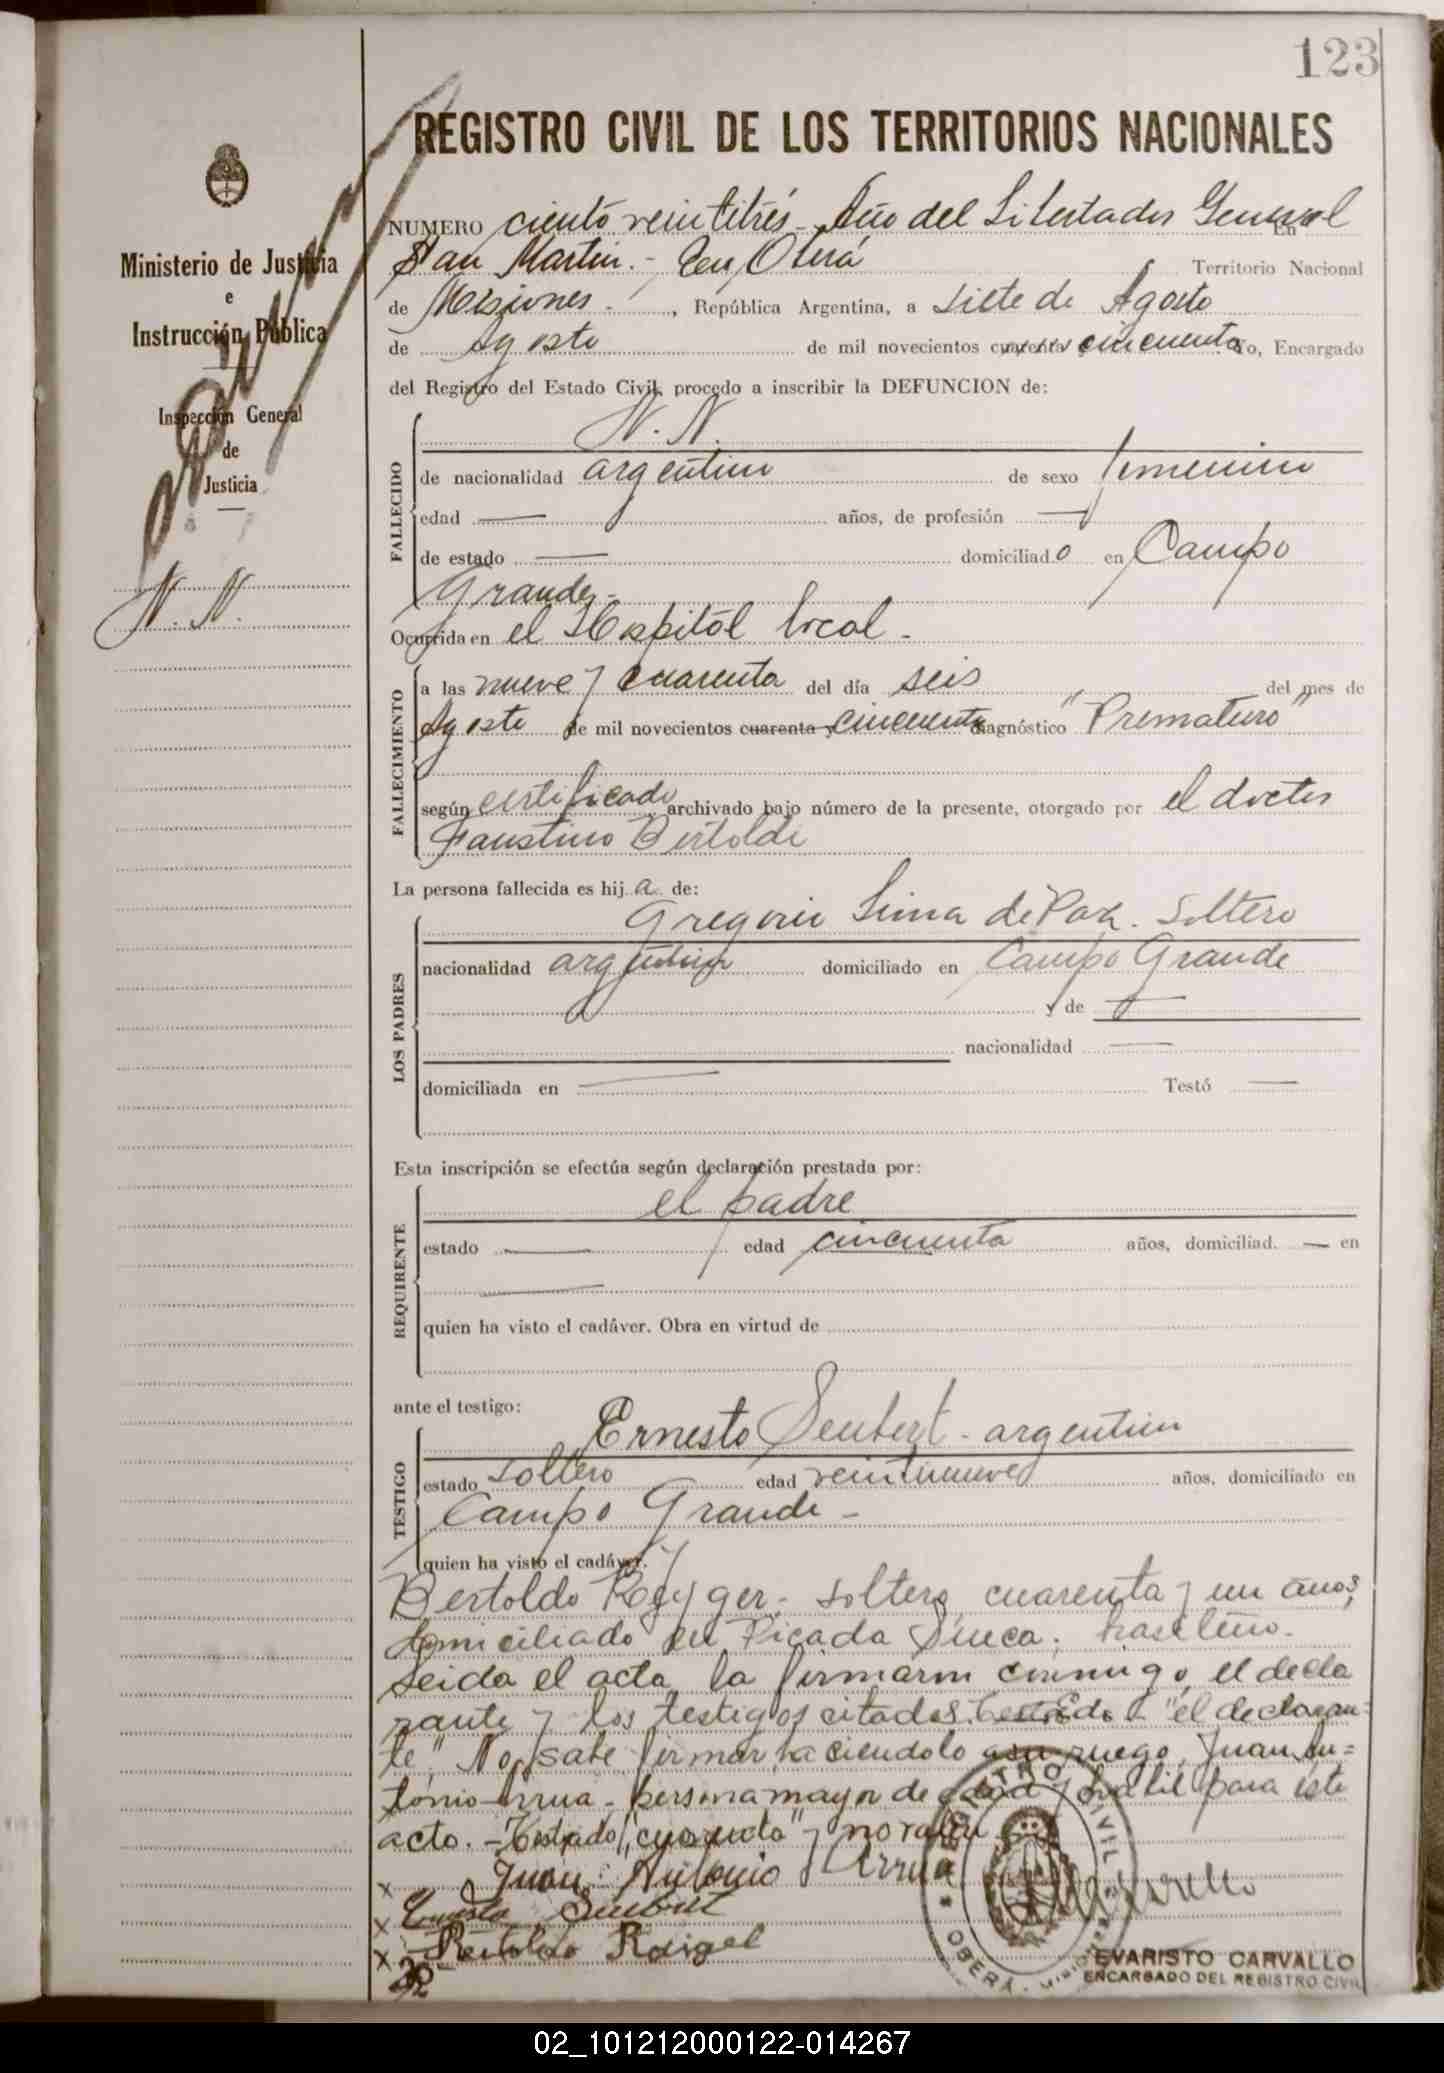 123
REGISTRO CIVIL DE LOS TERRITORIOS NACIONALES
Ministerio de Justicia
e
Instrucción Pública
Inspección General
de
Justicia
N. N.
NUMERO ciento veintitrés - Año del Libertador General En
San Martin.- En, Oberá Territorio Nacional
de Misiones. , República Argentina, a siete de Agosto
de Agosto de mil novecientos cuarenta cincuenta Yo, Encargado
del Registro del Estado Civil, procedo a inscribir la DEFUNCION de:
FALLECIDO
N. N.
de nacionalidad argentin de sexo femenino
edad — años, de profesión —
de estado — domiciliado en Campo
Grande -
Ocurrida en el Hospital local -
FALLECIMIENTO
a las nueve y cuarenta del día seis del mes de
Agosto de mil novecientos cuarenta y cincuenta diagnóstico "Prematuro"
según certificado archivado bajo número de la presente, otorgado por el doctor
Faustino Bertoldi
La persona fallecida es hija de:
LOS PADRES
Gregorio Lima de Paz. soltero
nacionalidad argentin domiciliado en Campo Grande
y de —
nacionalidad —
domiciliada en — Testó —
Esta inscripción se efectúa según declaración prestada por:
REQUIRENTE
el padre
estado — edad cincuenta años, domiciliad. — en
—
quien ha visto el cadáver. Obra en virtud de
ante el testigo:
TESTIGO
Ernesto Seubert - argentin
estado soltero edad veintinueve años, domiciliado en
Campo Grande -
quien ha visto el cadáver. y
Bertoldo - soltero, cuarenta y un años,
domiciliado en Picada Sueca. brasileño.
Leida el acta la firmaron conmigo, el decla
rante y los testigos citados. Testado "el declaran=
te" No sabe firmar haciendolo a su ruego, Juan An=
tonio Arrua - persona mayor de edad y habil para este
acto. - Testado/"cuarenta" y no valen
x Juan Antonio Arrua
x Ernesto Seubert
x Bertoldo
REGISTRO CIVIL
OBERÁ - Misiones
EVARISTO CARVALLO
ENCARGADO DEL REGISTRO CIVIL
02_101212000122-014267